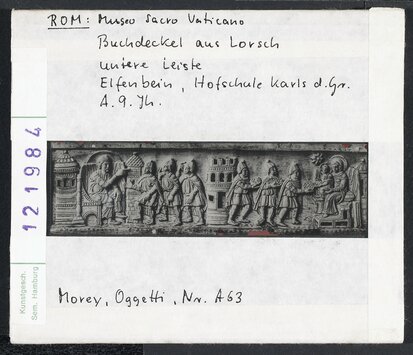 ROM: Museo Sacro Vaticano
Buchdeckel aus Lorsch
untere Leiste
Elfenbein, Hofschule Karls d. Gr.
A. 9. Jh.
121984
Kunstgesch.
Sem. Hamburg
Morey, Oggetti, Nr. A63